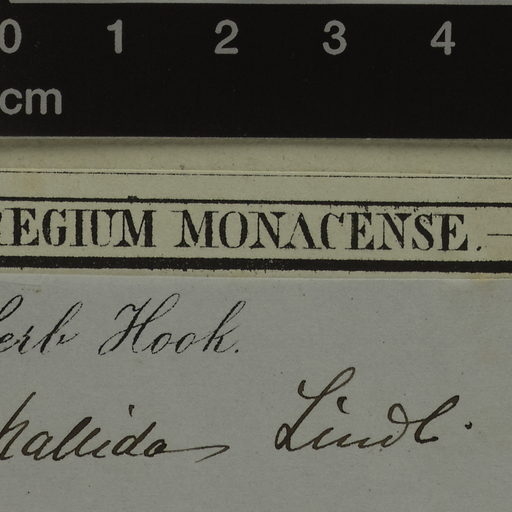 0 1 2 3 4
cm
REGIUM MONACENSE.
Herb Hook.
pallida Lindl.